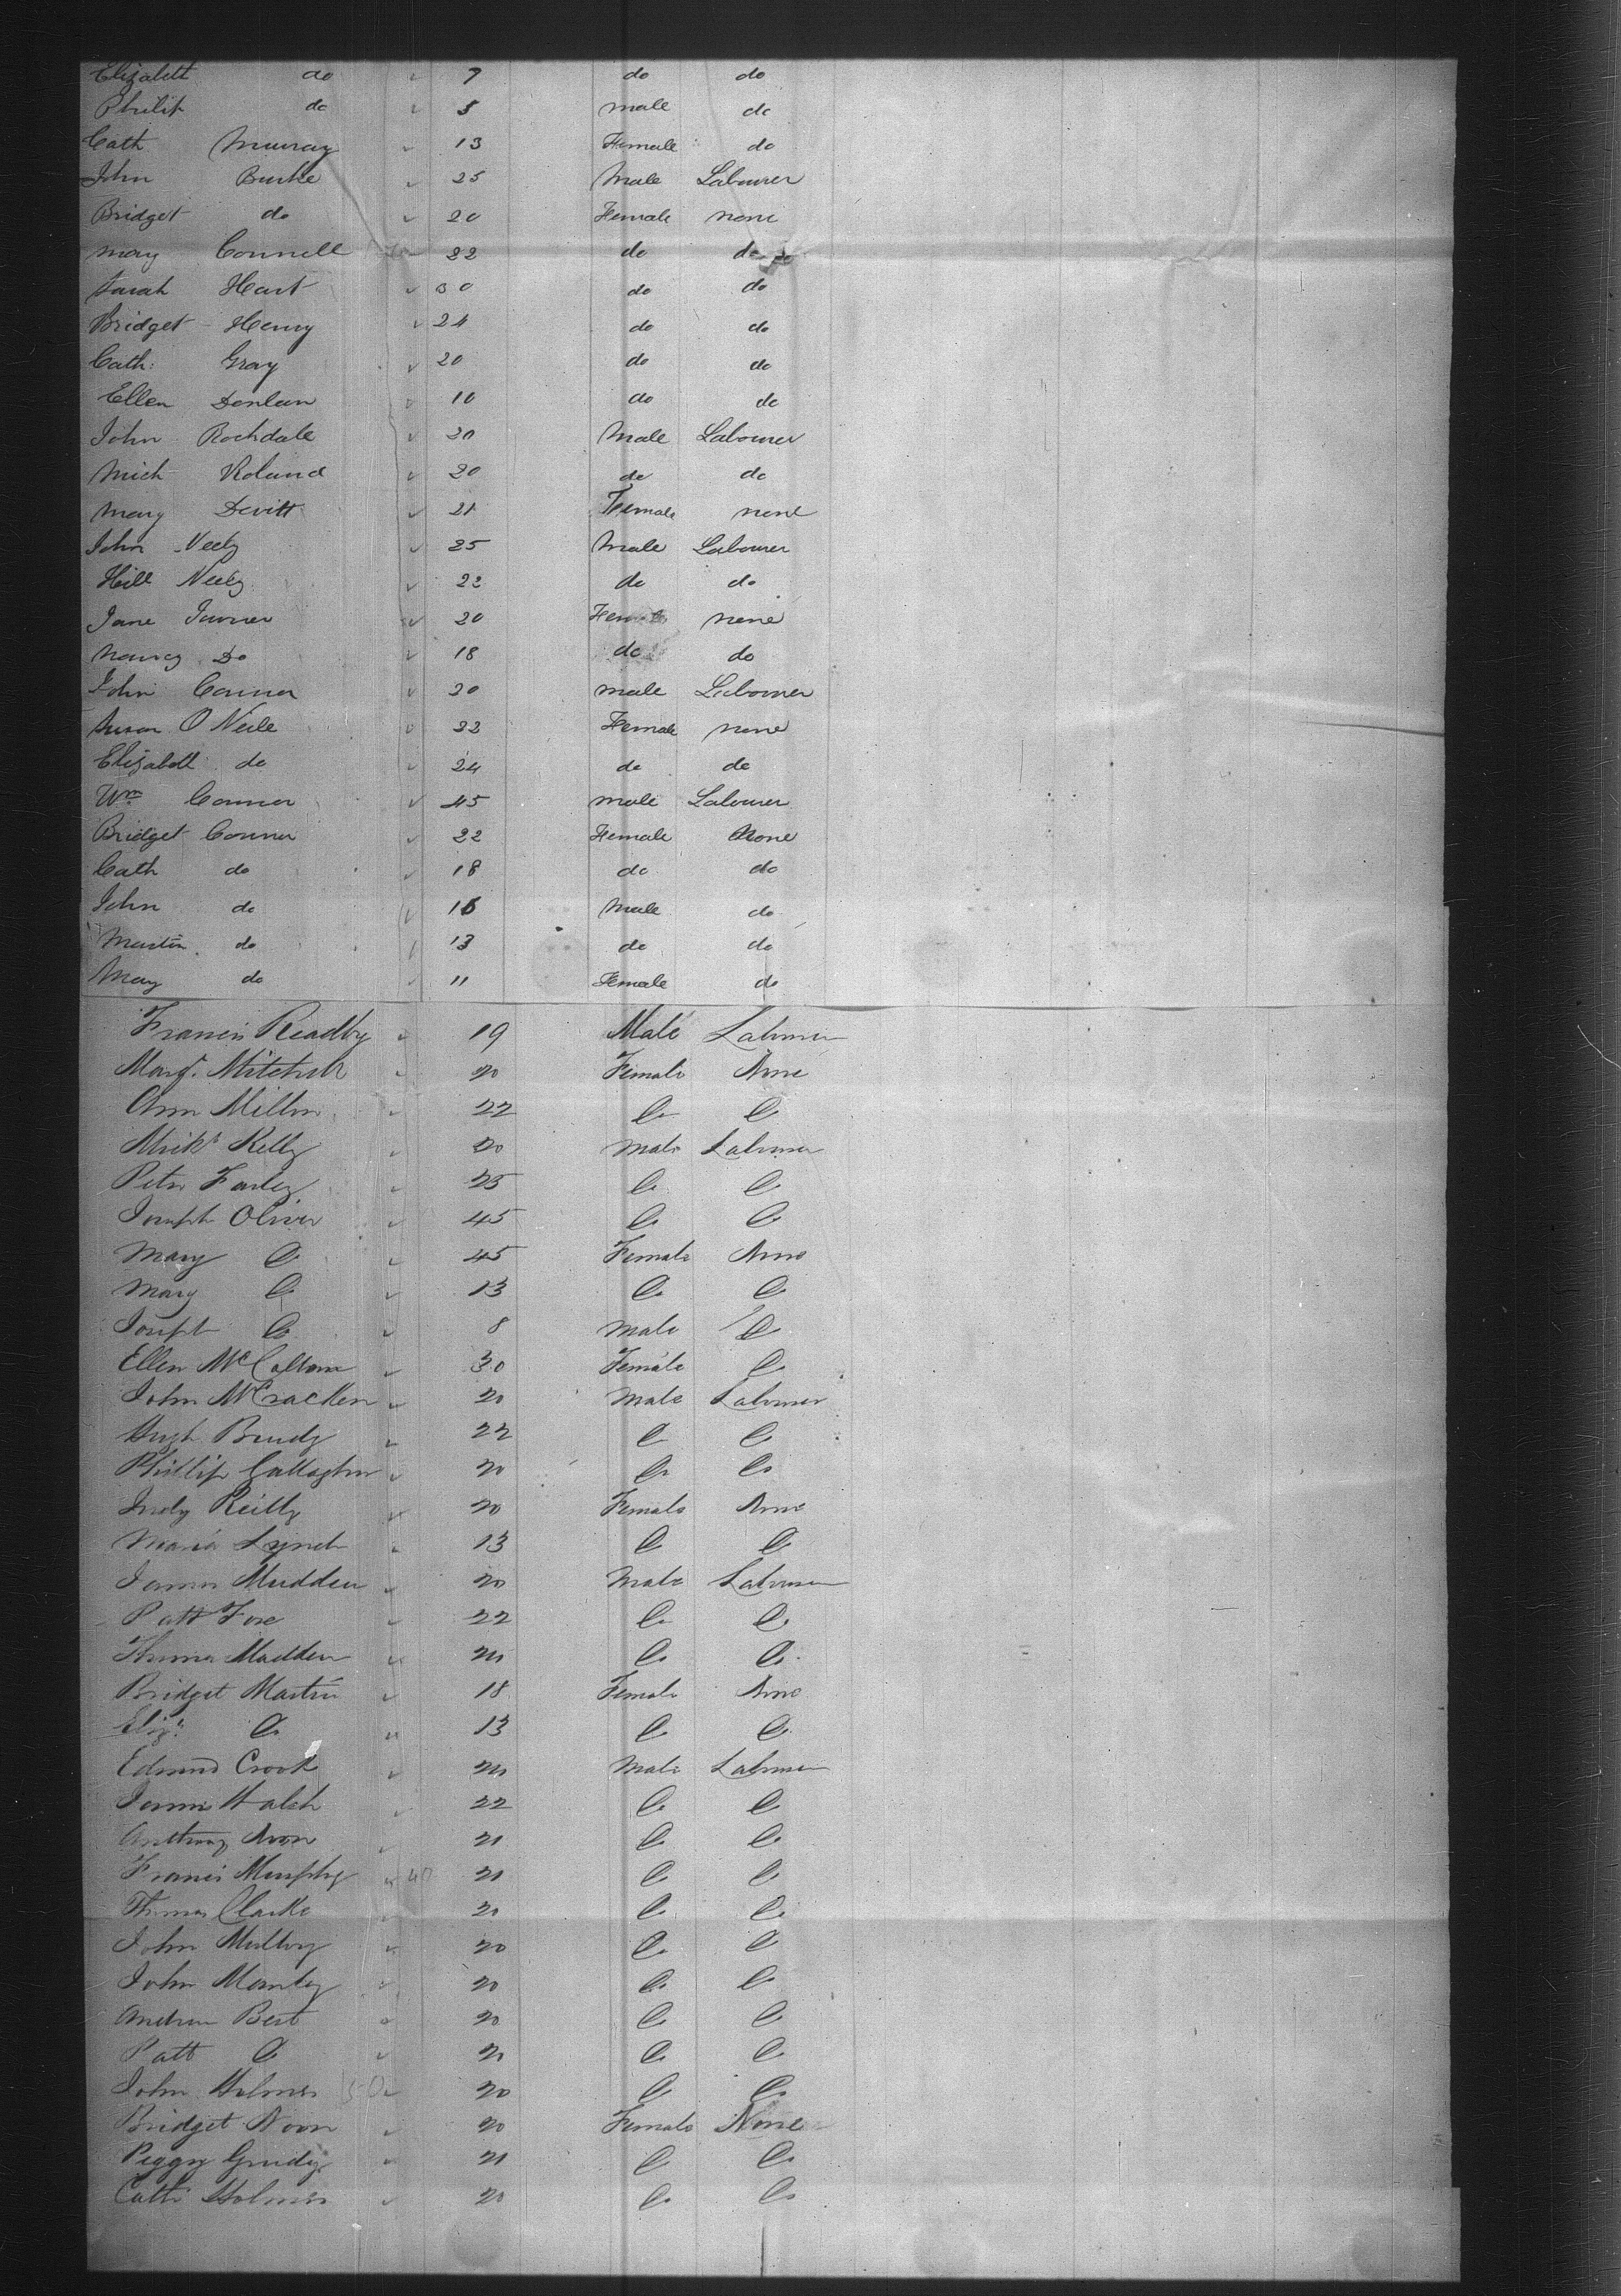 Elizabeth do 7 do do
Philip do 5 male do
Cath Murray 13 Female do
John Burke 25 Male Labourer
Bridget do 20 Female none
Mary Connell 22 do do
Sarah Hart 30 do do
Bridget Henry 24 do do
Cath: Gray 20 do do
Ellen Donlan 10 do do
John Rochdale 20 Male Labourer
Mich Roland 20 do do
Mary Devitt 21 Female none
John Neely 25 Male Labourer
Hill Neely 22 do do
Jane Turner 20 Female none
Nancy Do 18 do do
John Connor 20 male Labourer
Susan O Neile 22 Female none
Elizabeth do 24 do do
Wm Connor 45 male Labourer
Bridget Connor 22 Female None
Cath do 18 do do
John do 16 Male do
Martin do 13 do do
Mary do 11 Female do
Francis 19 Male Labourer
Margt. Mitchell 20 Female None
Ann 22 Do Do
Michl Kelly 20 Male Labourer
Peter Farley 25 Do Do
Joseph Oliver 45 Do Do
Mary Do 45 Female None
Mary Do 13 Do Do
Joseph Do 8 Male Do
Ellen McCallum 30 Female Do
John McCracken 20 Male Labourer
Hugh 22 Do Do
Phillip Gallagher 20 Do Do
Judy Reilly 20 Female None
Maria Lynch 13 Do Do
James Madden 20 Male Labourer
Patt Fox 22 Do Do
Thomas Madden Do Do
Bridget Martin 18 Female None
Eliza Do 13 Do Do
Edmund Crook Male Labourer
James Walsh 22 Do Do
Anthony Noon 21 Do Do
Francis Murphy 40 21 Do Do
Thomas Clarke 20 Do Do
John 20 Do Do
John Manley 20 Do Do
Andrew Best 20 Do Do
Patt Do Do Do
John Holmes 50 20 Do Do
Bridget Noon 20 Female None
Peggy 21 Do Do
Cath Holmes 20 Do Do